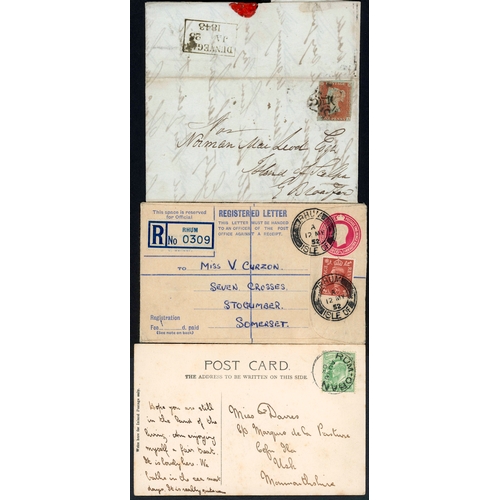 DUNVEGAN
JA 23
1843
Norman MacLeod Esq
Island of
This space is reserved
for Official
REGISTERED LETTER
THIS LETTER MUST BE HANDED
TO AN OFFICER OF THE POST
OFFICE AGAINST A RECEIPT
R RHUM
No 0309
RHUM
A
12 MY
52
ISLE OF
TO MISS V. CURZON,
SEVEN CROSSES,
STOGUMBER,
SOMERSET.
RHUM
12 MY
52
ISLE OF
Registration
Fee d. paid
POST CARD.
THE ADDRESS TO BE WRITTEN ON THIS SIDE.
RUM·OBAN
Hope you are still
in the land of the
living. Am enjoying
myself a fair treat.
It is lovely here. We
bathe in the sea most
days. It is really
Miss Davies
c/o Marquis de la Pasture
Cefn Ila
Usk
Monmouthshire